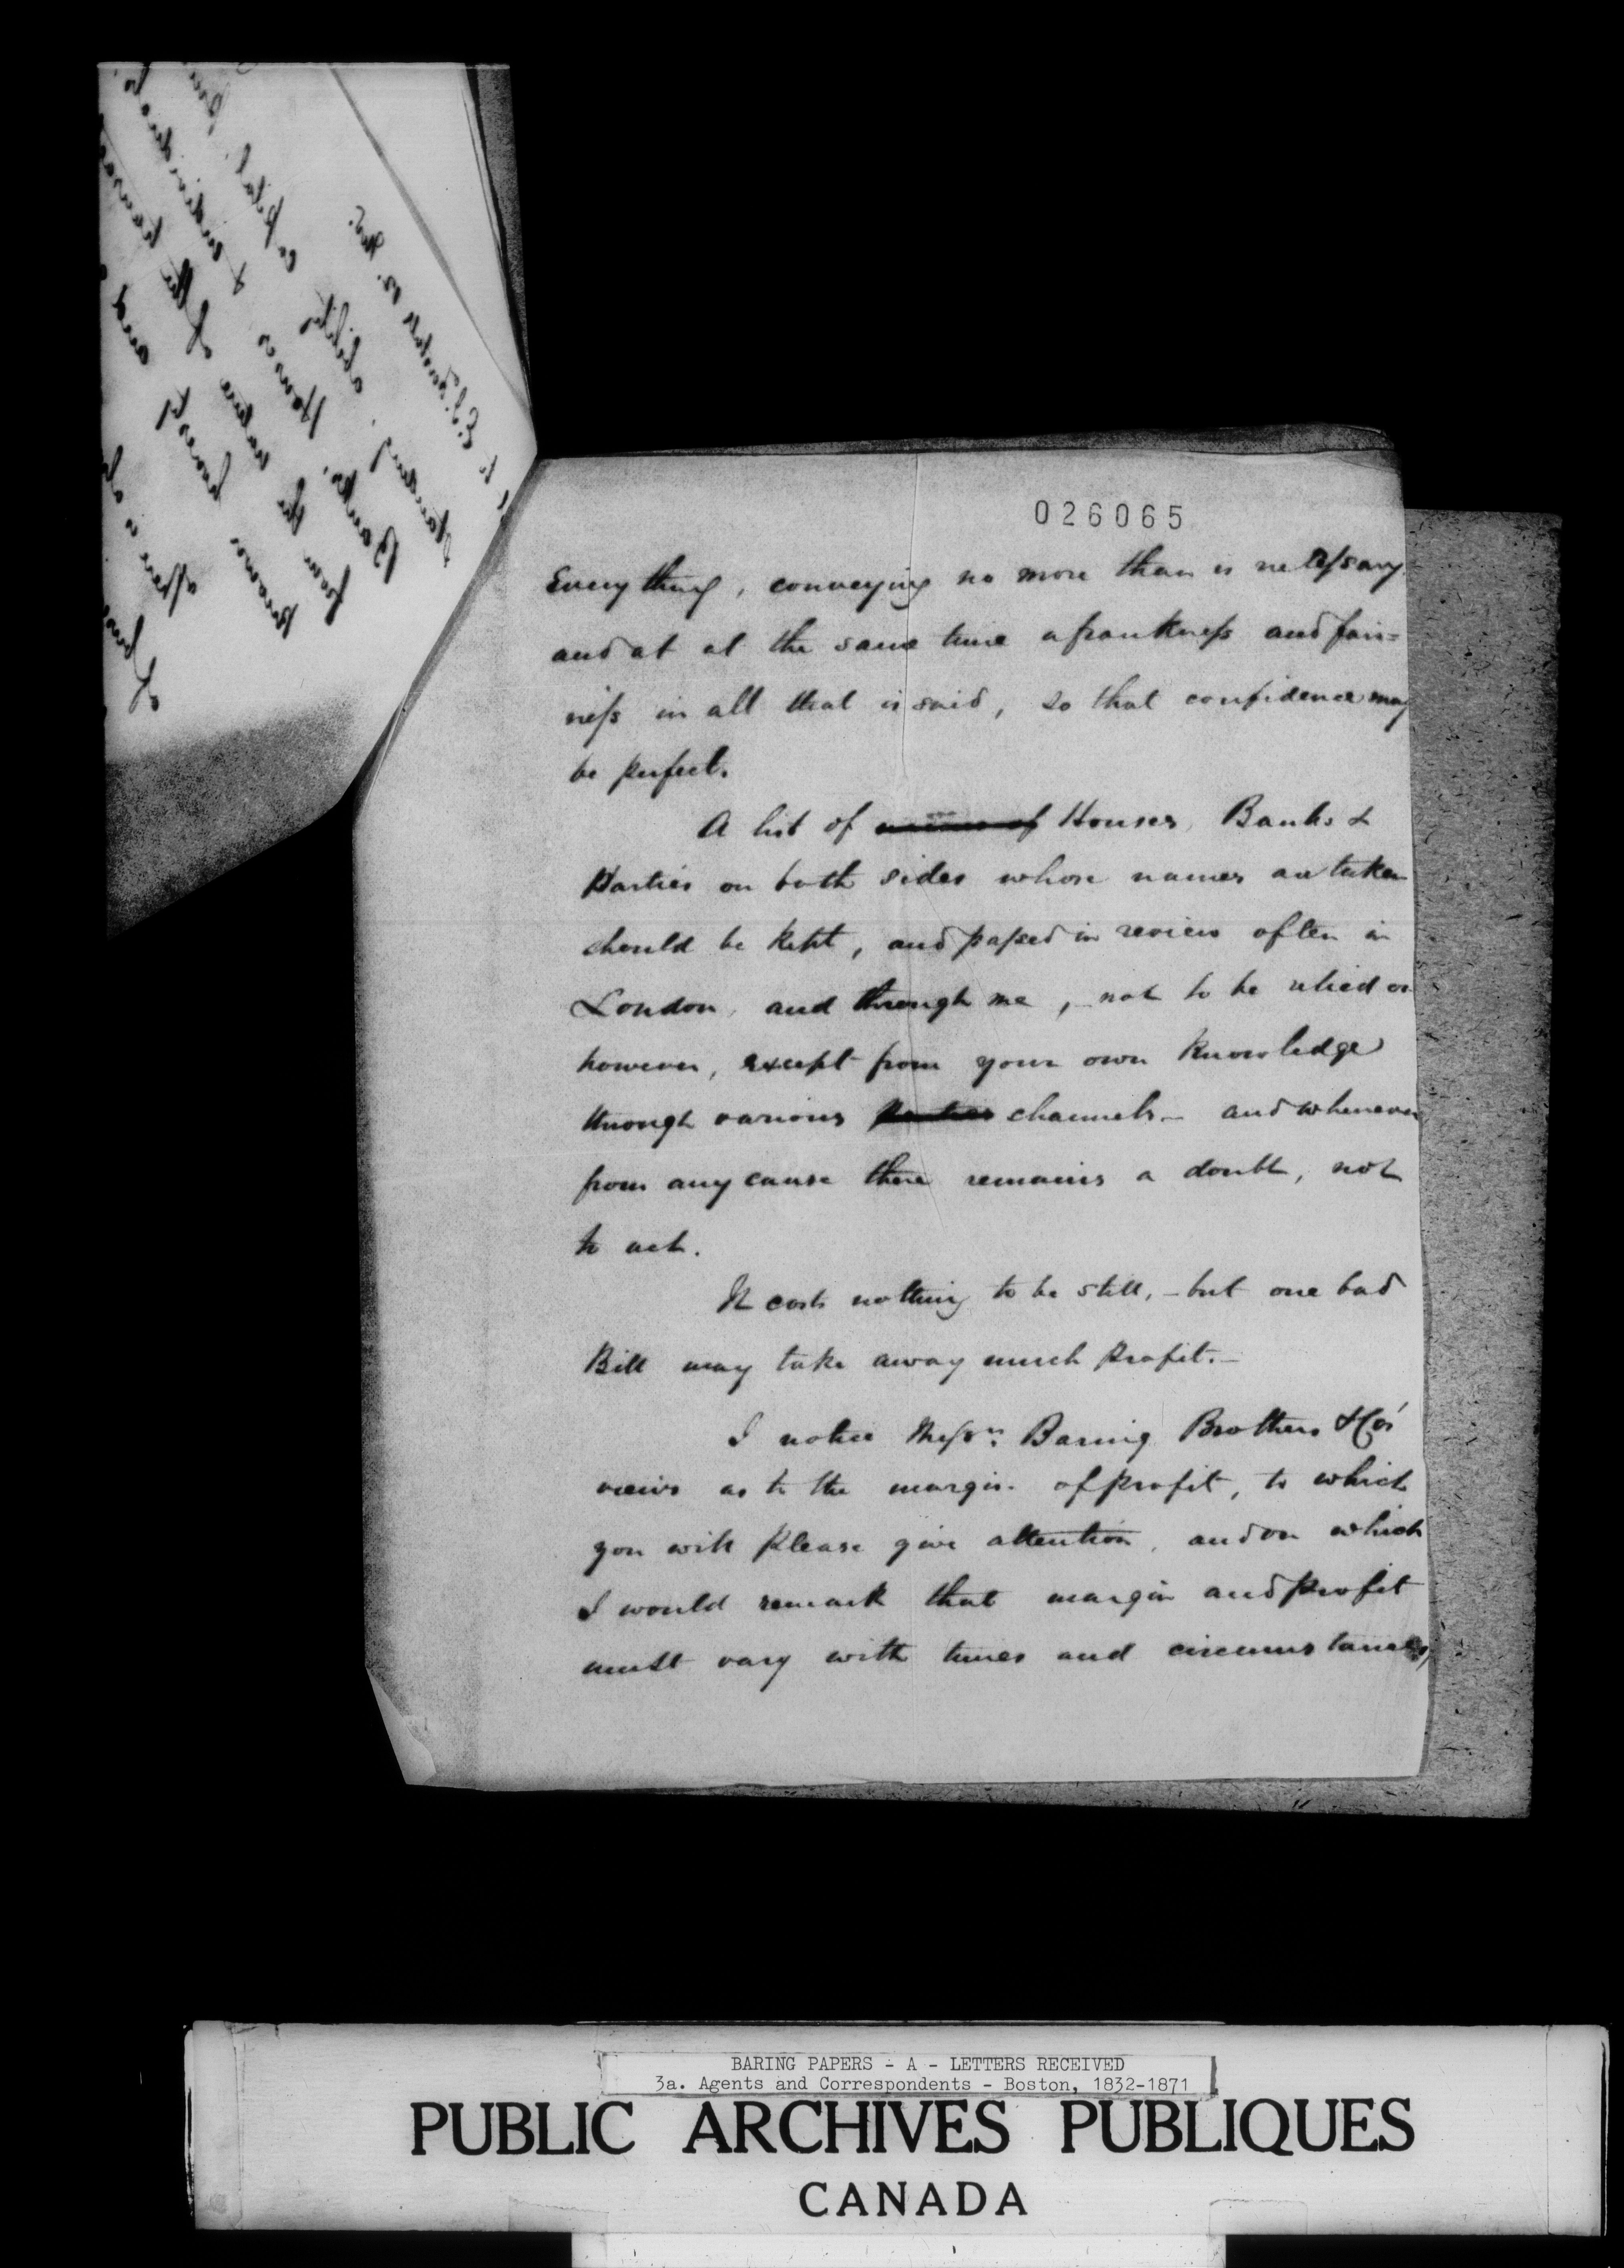 026065
Every thing, conveying no more than is necessary
and at at the same time a frankness and fair=
ness in all that is said, so that confidence may
be perfect.
A list of names of Houses, Banks &
Parties on both sides whose names are taken
should be kept, and passed in review often in
London, and through me, - not to be relied on
however, except from your own knowledge
through various parties channels - and whenever
from any cause there remains a doubt, not
to act.
It costs nothing to be still, - but one bad
Bill may take away much profit. -
I notice Messrs. Baring Brothers & Co's
views as to the margin of profit, to which
you will please give attention, and on which
I would remark that margin and profit
must vary with times and circumstances,
BARING PAPERS - A - LETTERS RECEIVED
3a. Agents and Correspondents - Boston, 1832-1871
PUBLIC ARCHIVES PUBLIQUES
CANADA